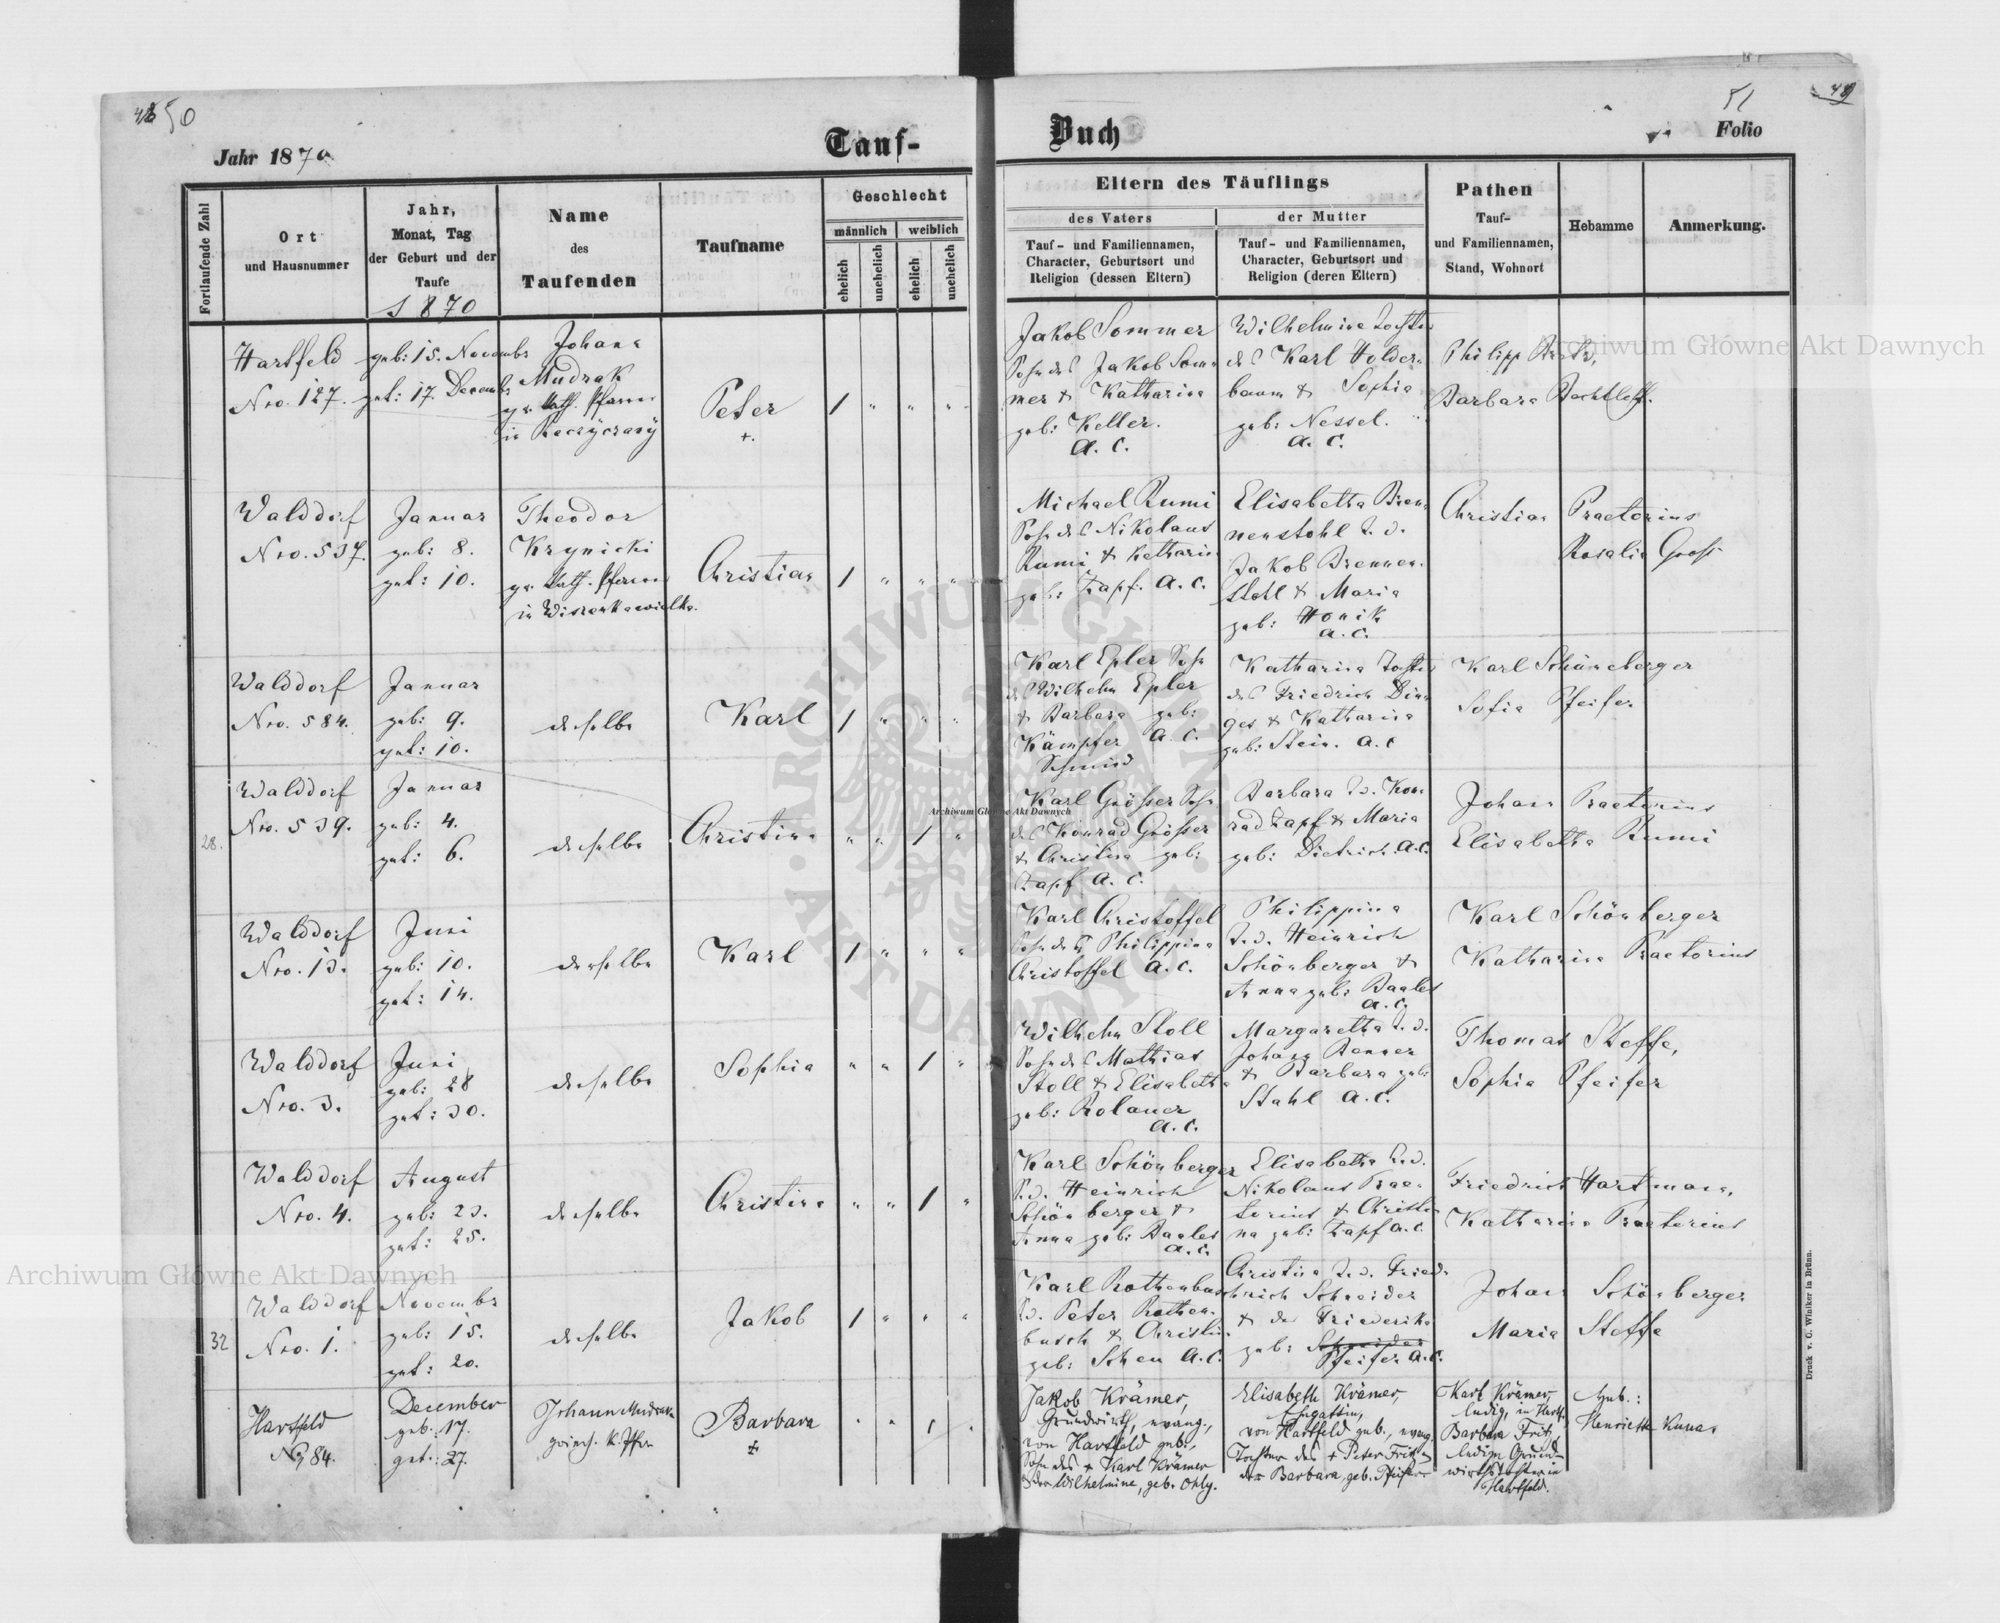 50
Jahr 1870
Tauf-
Fortlaufende Zahl
Ort
und Hausnummer
Jahr,
Monat, Tag
der Geburt und der
Taufe
1870
Name
des
Taufenden
Taufname
Geschlecht
männlich
weiblich
ehelich
unehelich
ehelich
unehelich
Hartfeld
Nro. 127.
geb: 15. Novembr
get: 17. Decembr
Johann
Mudrak
gr. kath. Pfarrer
in
Peter
+.
1
Walddorf
Nro. 537.
Januar
geb: 8.
get: 10.
Theodor
Krynicki
gr. kath. Pfarrer
in Wiszenka wielka.
Christian
1
Walddorf
Nro. 584.
Januar
geb: 9.
get: 10.
derselbe
Karl
1
28.
Walddorf
Nro. 539.
Januar
geb: 4.
get: 6.
derselbe
Christina
1
Walddorf
Nro. 13.
Juni
geb: 10.
get: 14.
derselbe
Karl
1
Walddorf
Nro. 3.
Juni
geb: 28
get: 30.
derselbe
Sophia
1
Walddorf
Nro. 4.
August
geb: 23.
get: 25.
derselbe
Christina
1
32
Walddorf
Nro. 1.
Novembr
geb: 15.
get: 20.
derselbe
Jakob
1
Hartfeld
No 84.
December
geb. 17.
get.: 27.
Johann Mudrak
griech. k. Pfr
Barbara
1
Buch
51
49
Folio
Eltern des Täuflings
des Vaters
Tauf- und Familiennamen,
Character, Geburtsort und
Religion (dessen Eltern)
der Mutter
Tauf- und Familiennamen,
Character, Geburtsort und
Religion (deren Eltern)
Pathen
Tauf-
und Familiennamen,
Stand, Wohnort
Hebamme
Anmerkung.
Jakob Sommer
Sohn des Jakob Som-
mer & Katharina
geb: Keller.
a. c.
Wilhelmine Tochter
des Karl Holder-
baum & Sophia
geb: Nessel.
a. c.
Philipp
Barbara Bechtloff.
Michael Rumi
Sohn des Nikolaus
Rumi & Katharin
geb: Zapf. a. c.
Elisabetha Bren-
nenstohl T. d.
Jakob Brennen-
stohl & Maria
geb: Honik
a. c.
Christian Praetorius
Rosalia Gross
Karl Epler Sohn
des Wilhelm Epler
& Barbara geb:
Kämpfer a. c.
Schmied
Katharina Tochter
des Friedrich Din-
ges & Katharina
geb: Stein. a. c
Karl Schöneberger
Sofia Pfeifer
Karl Grösser Sohn
des Konrad Grösser
& Christina geb:
Zapf a. c.
Barbara T. d. Kon-
rad Zapf & Maria
geb: Dietrich. a. c.
Johann Praetorius
Elisabetha Rumi
Karl Christoffel
Sohn der Philippina
Christoffel a. c.
Philippina
T. d. Heinrich
Schönberger &
Anna geb: Baales
a. c.
Karl Schönberger
Katharina Praetorius
Wilhelm Stoll
Sohn des Mathias
Stoll & Elisabetha
geb: Rolauer
a. c.
Margaretha T. d.
Johann Benner
& Barbara geb:
Stahl a. c.
Thomas Steffe,
Sophia Pfeifer
Karl Schönberger
S. d. Heinrich
Schönberger &
Anna geb: Baales
a. c.
Elisabetha T. d.
Nikolaus Prae-
torius & Christi-
na geb: Zapf a. c.
Friedrich Hartmann,
Katharina Praetorius
Karl Rothenbusch
S. d. Peter Rothen-
busch & Christin
geb: Scheu a. c.
Christina T. d. Fried-
rich Schneider
& der Friederika
geb: Schneider
Pfeifer a. c.
Johann Schönberger
Maria Steffe
Jakob Krämer,
Grundwirth, evang.,
von Hartfeld geb.,
Sohn des + Karl Krämer
& der Wilhelmine, geb. Ohly.
Elisabeth Krämer,
Ehegattin,
von Hartfeld geb., evang.
Tochter des + Peter Fritz
der Barbara, geb. Pfeifer
Karl Krämer,
ledig, in Hartf.
Barbara Fritz,
ledige Grund-
wirthstochter in
Hartfeld.
Heb.:
Henriette Kunas
Druck v. C. Winiker in Brünn.
Archiwum Główne Akt Dawnych
Archiwum Główne Akt Dawnych
Archiwum Główne Akt Dawnych
ARCHIWUM GŁÓWNE AKT DAWNYCH